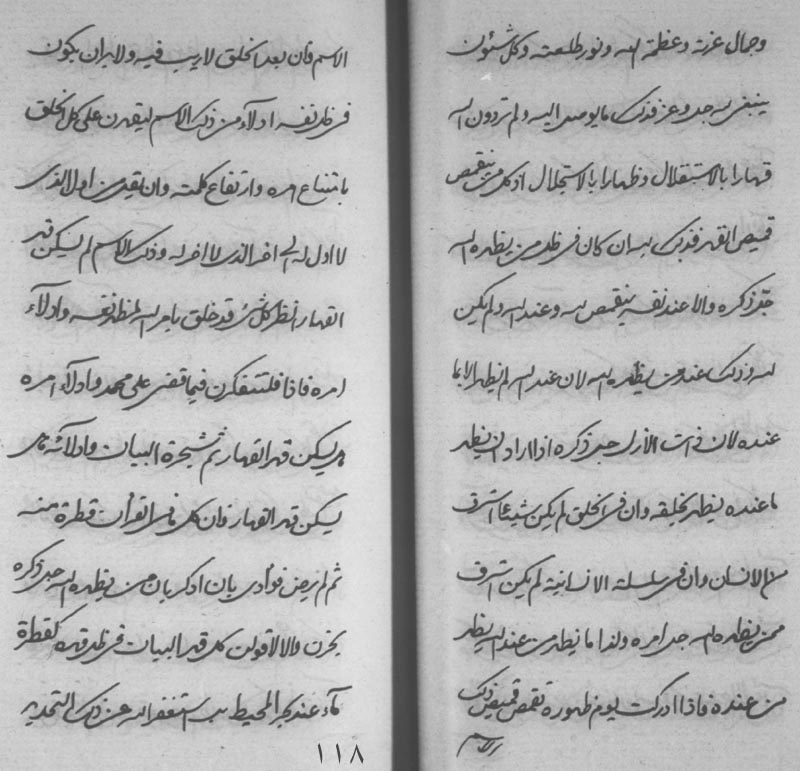 وجمال عزته وعظمة الله ونور طلعته وكل شئون
ينبغي لله جل وعز فذلك ما يوصل اليه ولم تردون الله
قهارا بالاستقلال وظهارا بالاستجلال اذ كل من يتقمص
قميص القهر فذلك لله ان كان في ظل من يظهره الله
جل ذكره والا عند نفسه يتقمص لله وعند الله ولم يكن
لله وذلك عند من يظهره الله لان عند الله لم يظهر الا بما
عنده لان ذات الازل جل ذكره اذا اراد ان يظهر
ما عنده يظهر بخلقه وان في الخلق لم يكن شيئا اشرف
من الانسان وان في سلسلة الانسانية لم يكن اشرف
ممن يظهره الله جل امره ولذا ما يظهر من عند الله يظهر
من عنده فاذا ادركت يوم ظهوره تقمص قميص ذلك
الاسم
الاسم فان بعد الخلق لا ريب فيه ولا بد ان يكون
في ظل نفسه ادلاء من ذلك الاسم ليقهرن على كل الخلق
بامتناع امره وارتفاع كلمته وان يقهر من اول الذي
لا اول له الى اخر الذي لا اخر له وذلك الاسم لم يسكن قهر
القهار انظر كل شيء قد خلق بامر الله لمظهر نفسه وادلاء
امره فاذا فلتتفكرن فيما قضى على محمد وادلاء امره
هل يسكن قهر القهار ثم شجرة البيان وادلائه هل
يسكن قهر القهار وان كل ما في القرآن قطرة منه
ثم لم يرض فؤادي بان اذكر بان من يظهره الله جل ذكره
يحزن والا لاقولن كل قهر البيان في ظل قهره كقطرة
ماء عند بحر المحيط بل استغفر الله عن ذلك التحديد
١١٨